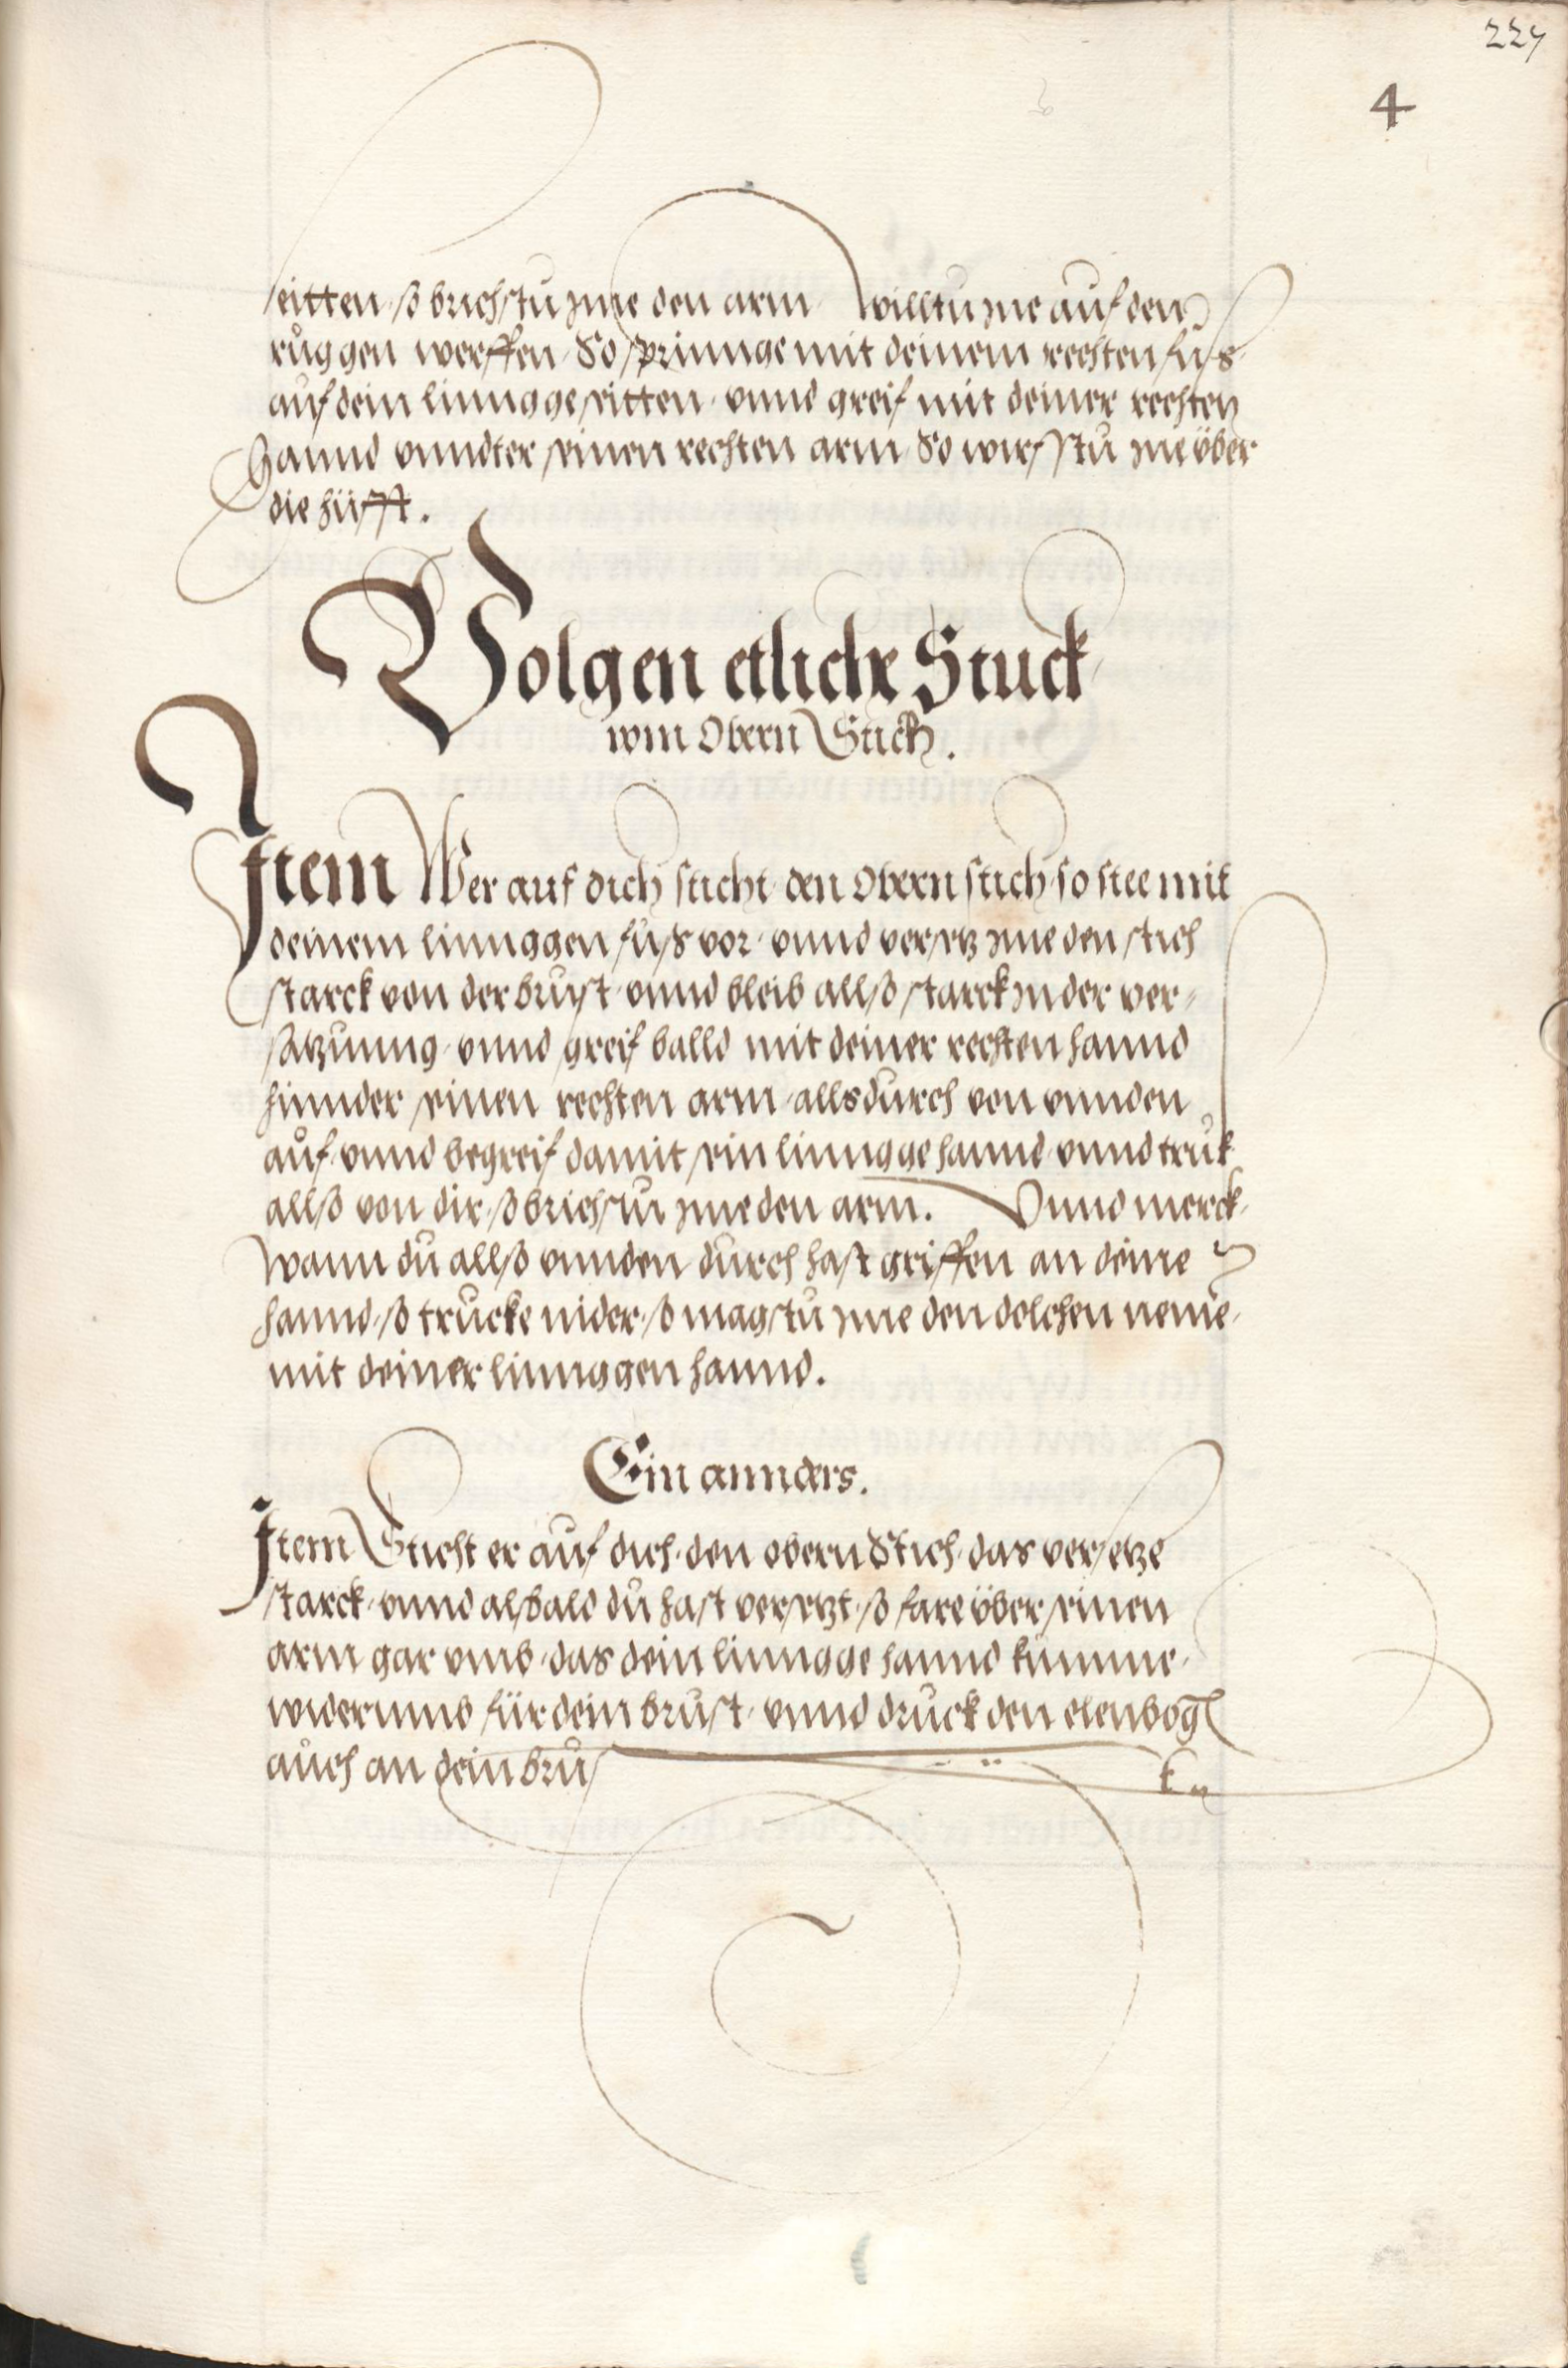 227
4
seitten, so brichstu jme den arm. Willtu jne auf den
ruggen werffen, So sprinnge mit deinem rechten fus
auf dein linngge seitten, vnnd greif mit deiner rechten
Hannd vnndter seinen rechten arm, So wirfstu jne über
die hüfft.
Volgen etliche Stuck
vom Obern Stich.
Item Wer auf dich sticht den Obern stich so stee mit
deinem linnggen fuß vor, vnnd versetz jme den stich
starck von der brust, vnnd bleib allso starck jn der ver-
satzunng, vnnd greif balld mit deiner rechten hannd
hinnder seinen rechten arm, alls durch von vnnden
auf, vnnd begreif damit sein linngge hannd, vnnd truk
allso von dir, so brichstu jme den arm. Vnnd merck,
wann du allso vnnden durch hast griffen an deine
hannd, so trucke nider, so magstu jme den dolchen neme,
mit deiner linnggen hannd.
Ein annders.
Item Sticht er auf dich, den obern Stich, das versetze
starck, vnnd alsbald du hast versetzt, so fare über seinen
arm gar vmb, das dein linngge hannd kumme,
widerumb für dein brust, vnnd druck den elenbogen
auch an dein brust